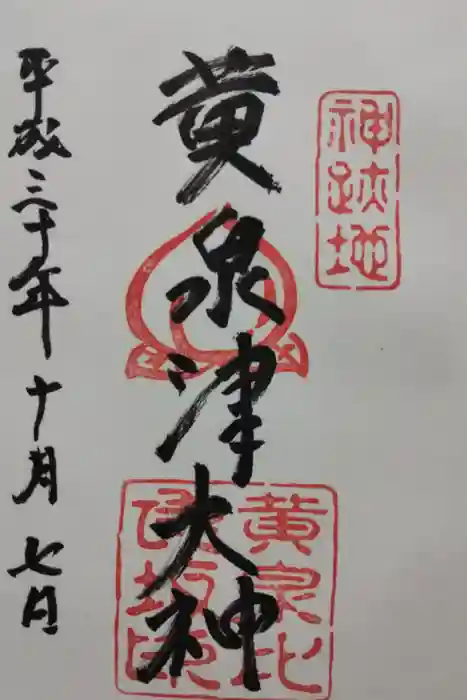 神跡地
黄泉津大神
黄泉比
良坂印
平成三十年十月七日